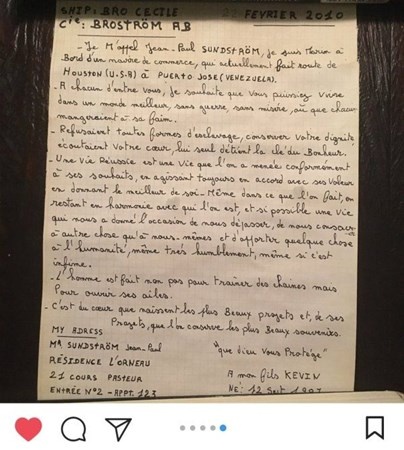 SHIP: BRO CECILE 22 FEVRIER 2010
Cie: BROSTRÖM AB
- Je M'appel Jean-Paul SUNDSTRÖM, je suis Marin à
Bord d'un navire de commerce, qui actuellement fait route de
HOUSTON (U.S.A) à PUERTO JOSE (VENEZUELA).
- A chacun d'entre vous, Je souhaite que vous puissiez vivre
dans un monde meilleur, sans guerre, sans misère, où que chacun
mangeraient à sa faim.
- Refusaient toutes formes d'esclavage, conserver votre dignité
écoutaient votre cœur, lui seul détient la clé du Bonheur.
- Une Vie Réussie est une Vie que l'on a menée conformément
à ses souhaits, en agissant toujours en accord avec ses Valeurs
en donnant le meilleur de soi-Même dans ce que l'on fait, en
restant en harmonie avec qui l'on est, et si possible une Vie
qui nous a donné l'occasion de nous dépasser, de nous consacrer
à autre chose qu'à nous-mêmes et d'apporter quelque chose
à l'humanité, même très humblement, même si c'est
infime.
- L'homme est fait non pas pour traîner des chaînes mais
Pour ouvrir ses ailes.
- C'est du cœur que naissent les plus Beaux projets et, de ses
Projets, que l'on conserve les plus Beaux souvenirs.
MY ADRESS
Mr SUNDSTRÖM Jean-Paul "que dieu Vous Protège"
RÉSIDENCE L'ORNEAU
21 COURS PASTEUR A mon fils KEVIN
ENTRÉE N°2 - APPT. 123 NÉ: 12 Sept